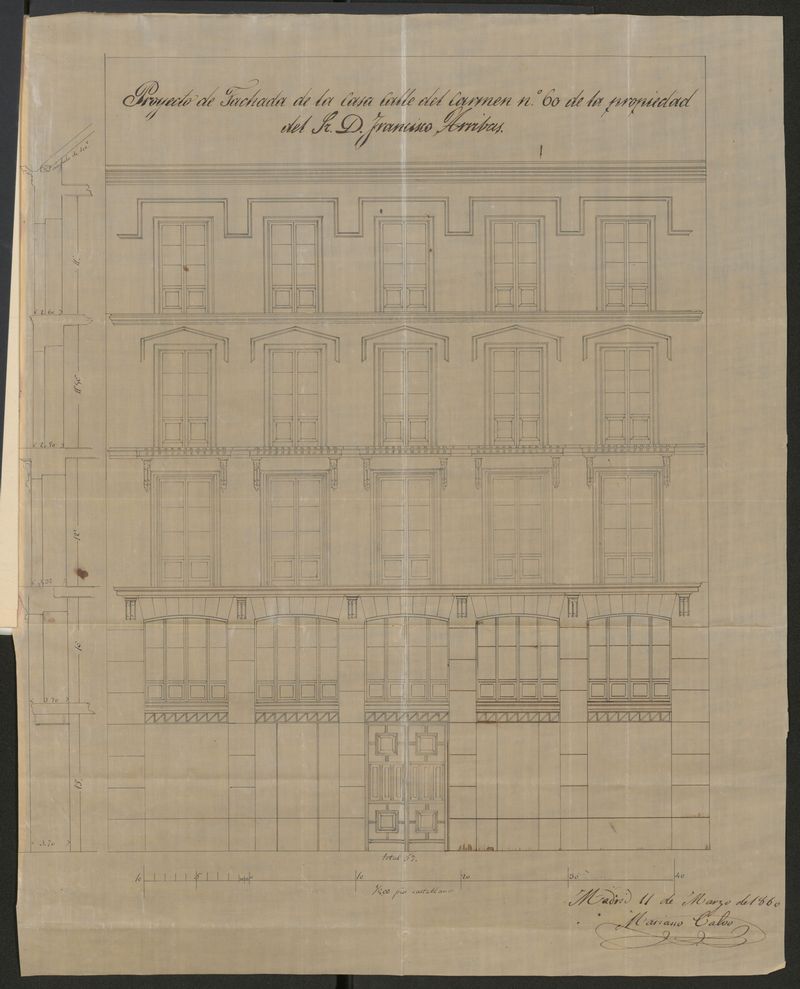 Proyecto de Fachada de la Casa Calle del Carmen n.º 60 de la propiedad
del Sr. D. Francisco Arribas.
11.
2.60
11,50
2.90
12.
13.
3.70
15.
3.70
total 57.
10 5 10 20 30 40
pie castellano
Madrid 11 de Marzo de 1860
Mariano Calvo